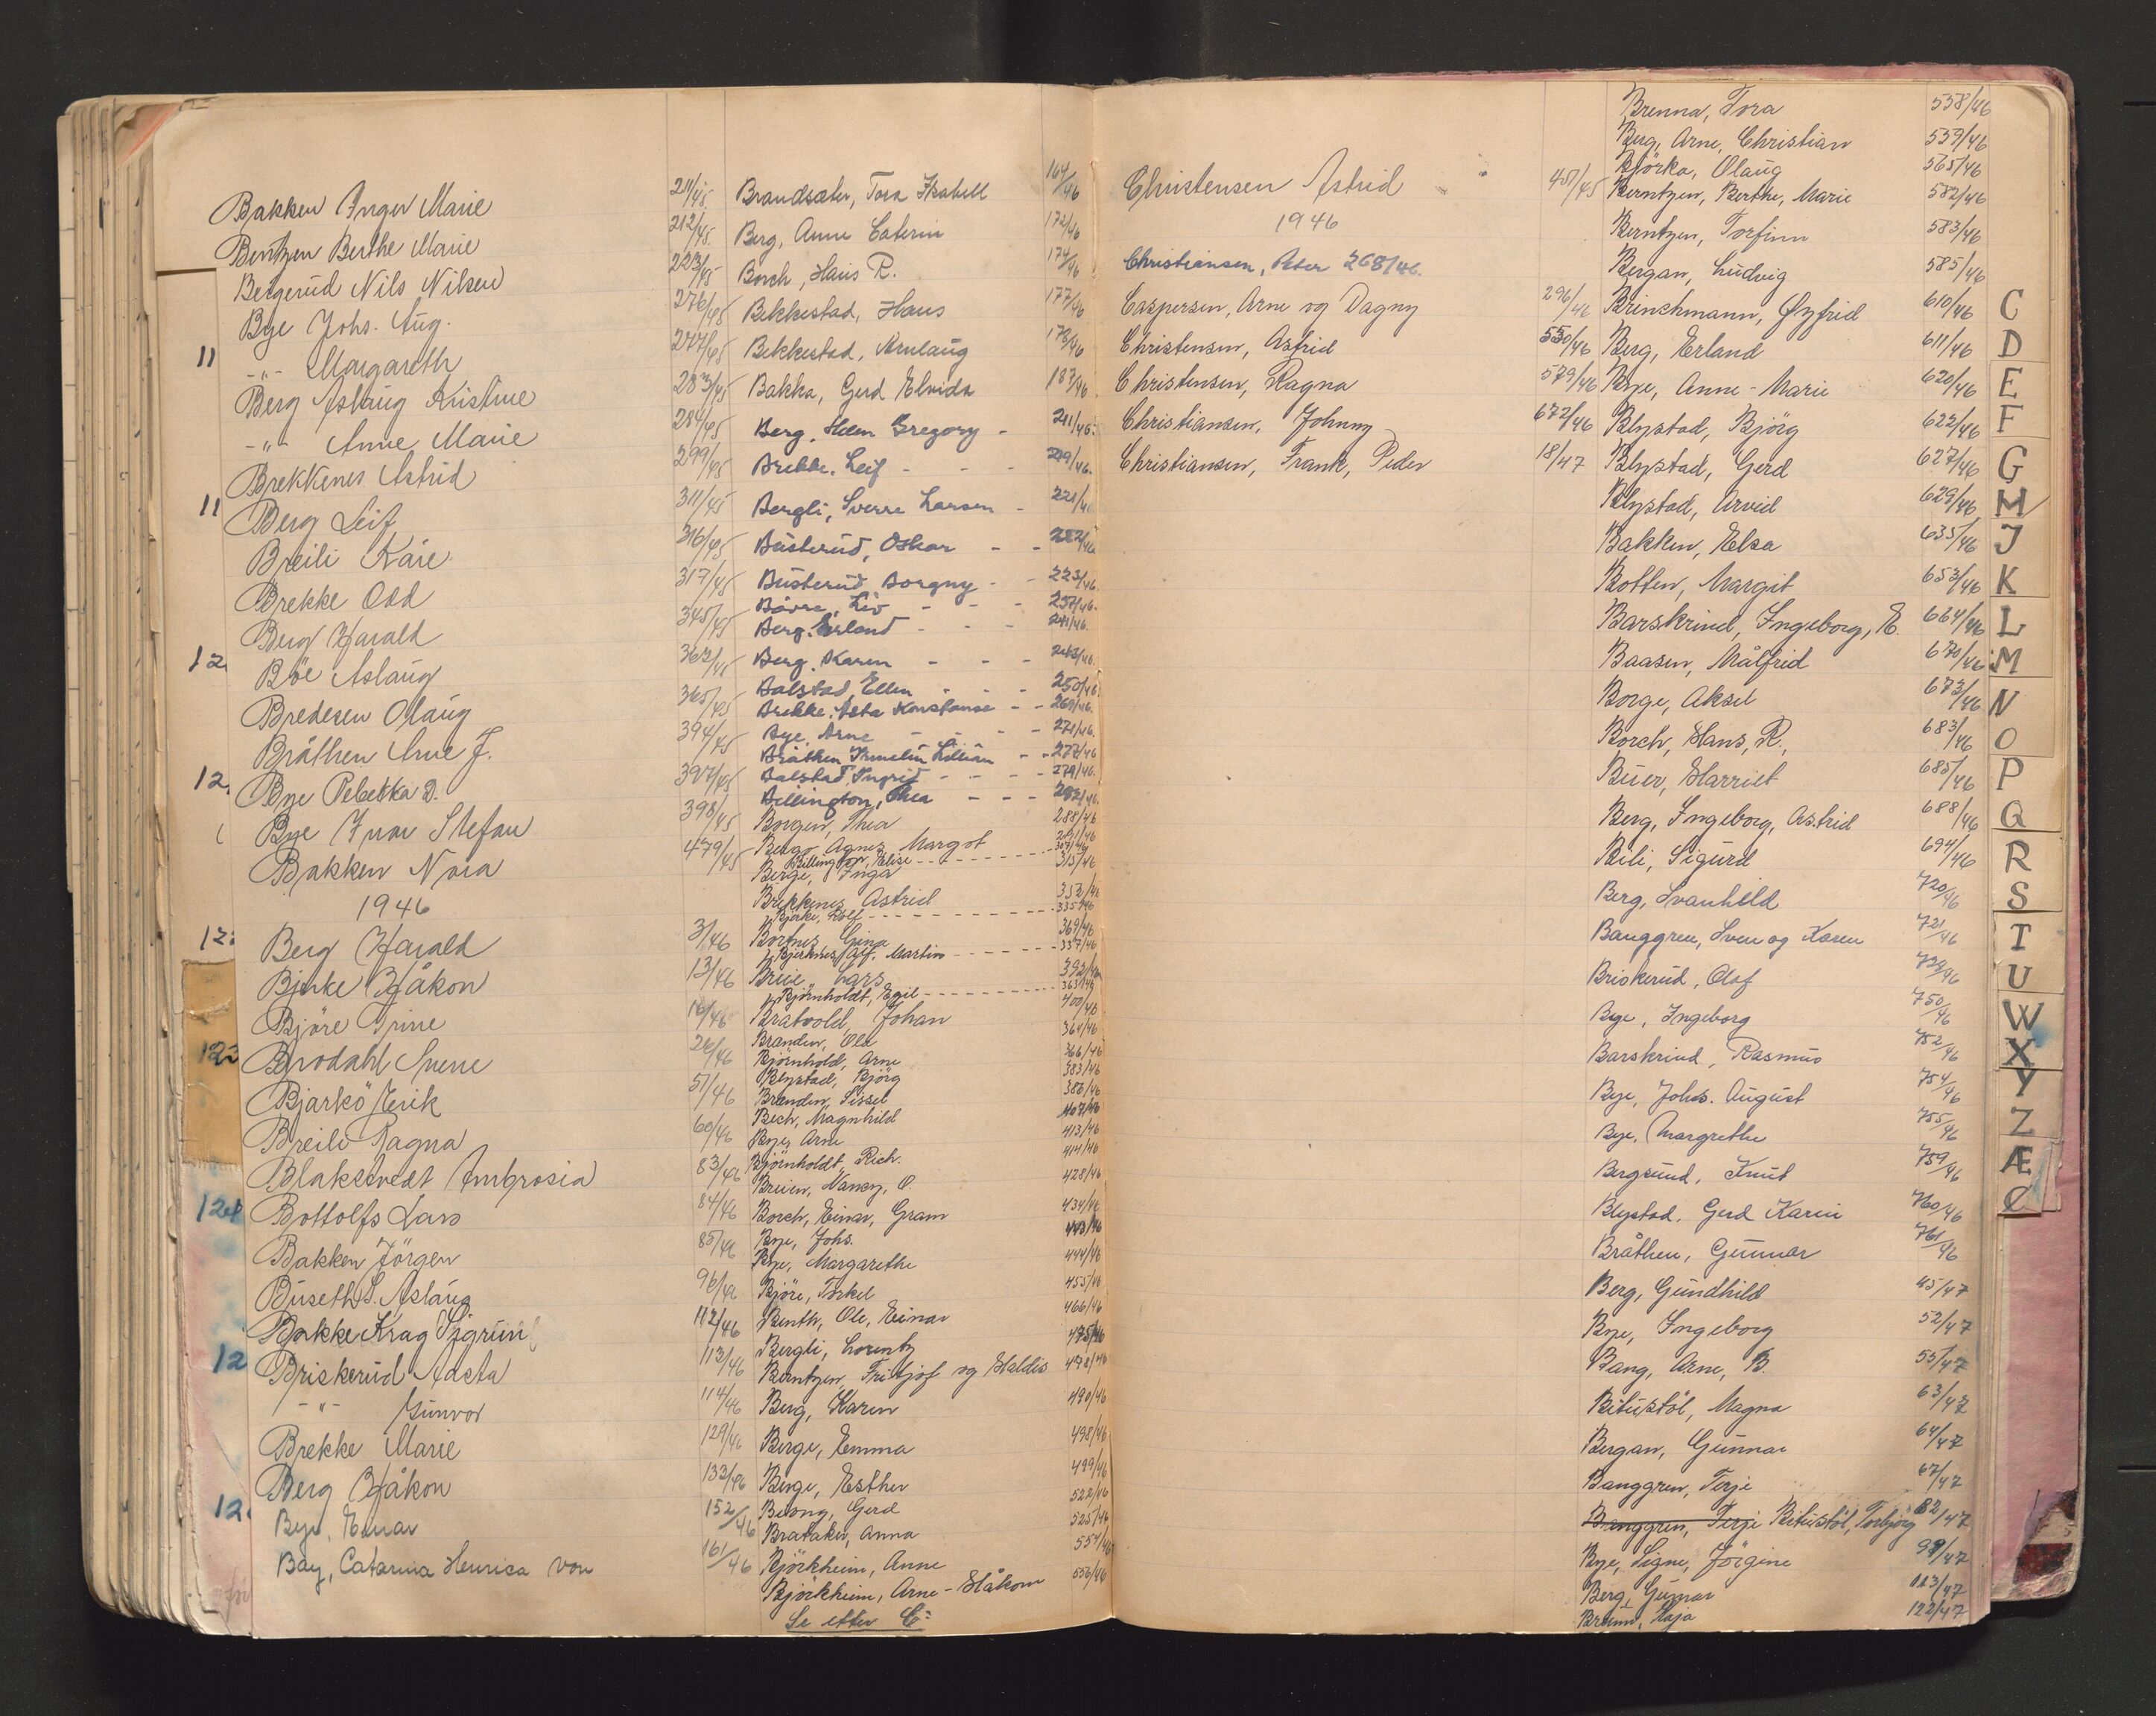 Bakken Inger Marie 211/45
Bentzen Berthe Marie 212/45.
Bergerud Nils Nilsen 223/45
Bye Johs. Aug. 276/45
-"- Margareth 277/45
Berg Aslaug Kristine 283/45
-"- Anne Marie 284/45
Brekkenes Astrid 299/45
Berg Leif 311/45
Breili Kåre 316/45
Brekke Odd 317/45
Berg Harald 345/45
Böe Aslaug 362/45
Bredesen Olaug 365/45
Bråthen Arne J. 394/45
Bye Rebekka D. 397/45
Bye Ivar Stefan 398/45
Bakken Nora 479/45
1946
Berg Harald 3/46
Bjerke Håkon 13/46
Björe Trine 16/46
Brodahl Sverre 26/46
Bjarkö Erik 51/46
Breili Ragna 60/46
Blakstvedt Ambrosia 83/46
Bottolfs Lars 84/46
Bakken Jörgen 85/46
Buseth S. Aslaug 96/46
Bakke Krag Sigrun 112/46
Briskerud Aasta 113/46
-"- Gunvor 114/46
Brekke Marie 129/46
Berg Håkon 133/46
Bye, Einar 152/46
Bay, Catarina Henrica von 161/46
Brandsæter, Tora Isabell 164/46
Berg, Anne Caterin 172/46
Borch, Hans R. 174/46
Bekkestad, Hans 177/46
Bekkestad, Arnlaug 178/46
Bakka, Gerd Elvida 187/46
Berg, Helen Gregory - 211/46.
Brekke, Leif - - - 219/46.
Bergli, Sverre Larsen - 221/46
Busterud, Oskar - - 222/46
Busterud, Borgny - - 223/46.
Båvra, Liv - - - 237/46.
Berg, Erland - - - 241/46.
Berg, Karen - - - 243/46.
Balstad, Ellen - - - 250/46
Brekke, Asta Konstanse - - 269/46.
Bye, Arne - - - - 271/46.
Bråthen Irmelin Lillian - - 277/46
Balstad Ingrid - - - - 279/46.
Billington, Thea - - - 282/46.
Borgen, Thea 288/46
Berge Agnes Margot 291/46
Billington, Elise - - - 307/46
Berge, Inga 315/46
Brekkenes Astrid 353/46
Bjerke, Rolf - - - 335/46
Bortnes Gina 369/46
Bjerknes, Alf. Martin - - - 337/46
Brue, Lars 392/46
Björnholdt, Egil - - - 363/46
Bratvold, Johan 400/46
Branden, Ole 364/46
Björnhold, Arne 366/46
Blystad, Björg 383/46
Brænden, Sissel 386/46
Bech, Magnhild 407/46
Bye, Arne 413/46
Björnholdt, Rich. 414/46
Bruen, Nancy, O. 428/46
Borch, Einar, Gram 434/46
Bye, Johs. 443/46
Bye, Margarethe 444/46
Björe, Torkel 455/46
Benth, Ole, Einar 466/46
Bergli, Lorentz 475/46
Berntzen, Fritjof og Haldis 478/46
Berg, Karen 490/46
Berge, Emma 498/46
Berge, Esther 499/46
Gerd 522/46
Brataker, Anna 525/46
Björkheim, Anne 554/46
Björkheim, Arne-Håkon 556/46
Se etter C:
Christensen Astrid 451/45
1946
Christiansen, Peter 268/46.
Caspersen, Arne og Dagny 296/46
Christensen, Astrid 550/46
Christensen, Ragna 579/46
Christiansen, Johnny 672/46
Christiansen, Frank, Peder 18/47
Brenna, Tora 558/46
Berg, Arne, Christian 559/46
Björka, Olaug 565/46
Berntzen, Berthe, Marie 582/46
Berntzen, Torfinn 583/46
Bergan, Ludvig 585/46
Brinchmann, Öyfrid 610/46
Berg, Erland 611/46
Bye, Anne-Marie 620/46
Blystad, Björg 622/46
Blystad, Gerd 627/46
Blystad, Arvid 629/46
Bakken, Elsa 635/46
Botten, Margit 653/46
Barskrind, Ingeborg, E. 664/46
Baasen, Målfrid 670/46
Borge, Aksel 673/46
Borch, Hans, R., 683/46
Buer, Harriet 685/46
Berg, Ingeborg, Astrid 688/46
Bili, Sigurd 694/46
Berg, Svanhild 720/46
Banggren, Sven og Karen 721/46
Briskerud, Olaf 729/46
Bye, Ingeborg 750/46
Barskrind, Rasmus 752/46
Bye, Johs. August 754/46
Bye, Margrethe 755/46
Bergsund, Knut 759/46
Blystad, Gerd Karin 760/46
Bråthen, Gunnar 761/46
Berg, Gundhild 45/47
Bye, Ingeborg 52/47
Bang, Arne, B. 55/47
Bitustöl, Magna 63/47
Bergan, Gunnar 64/47
Banggren, Terje 67/47
Banggren, Terje Bitustöl, Torbjörg 82/47
Bye, Signe, Jörgine 99/47
Berg, Gunnar 113/47
Haja 122/47
C
D
E
F
G
H
J
K
L
M
N
O
P
Q
R
S
T
U
W
X
Y
Z
Æ
Ø